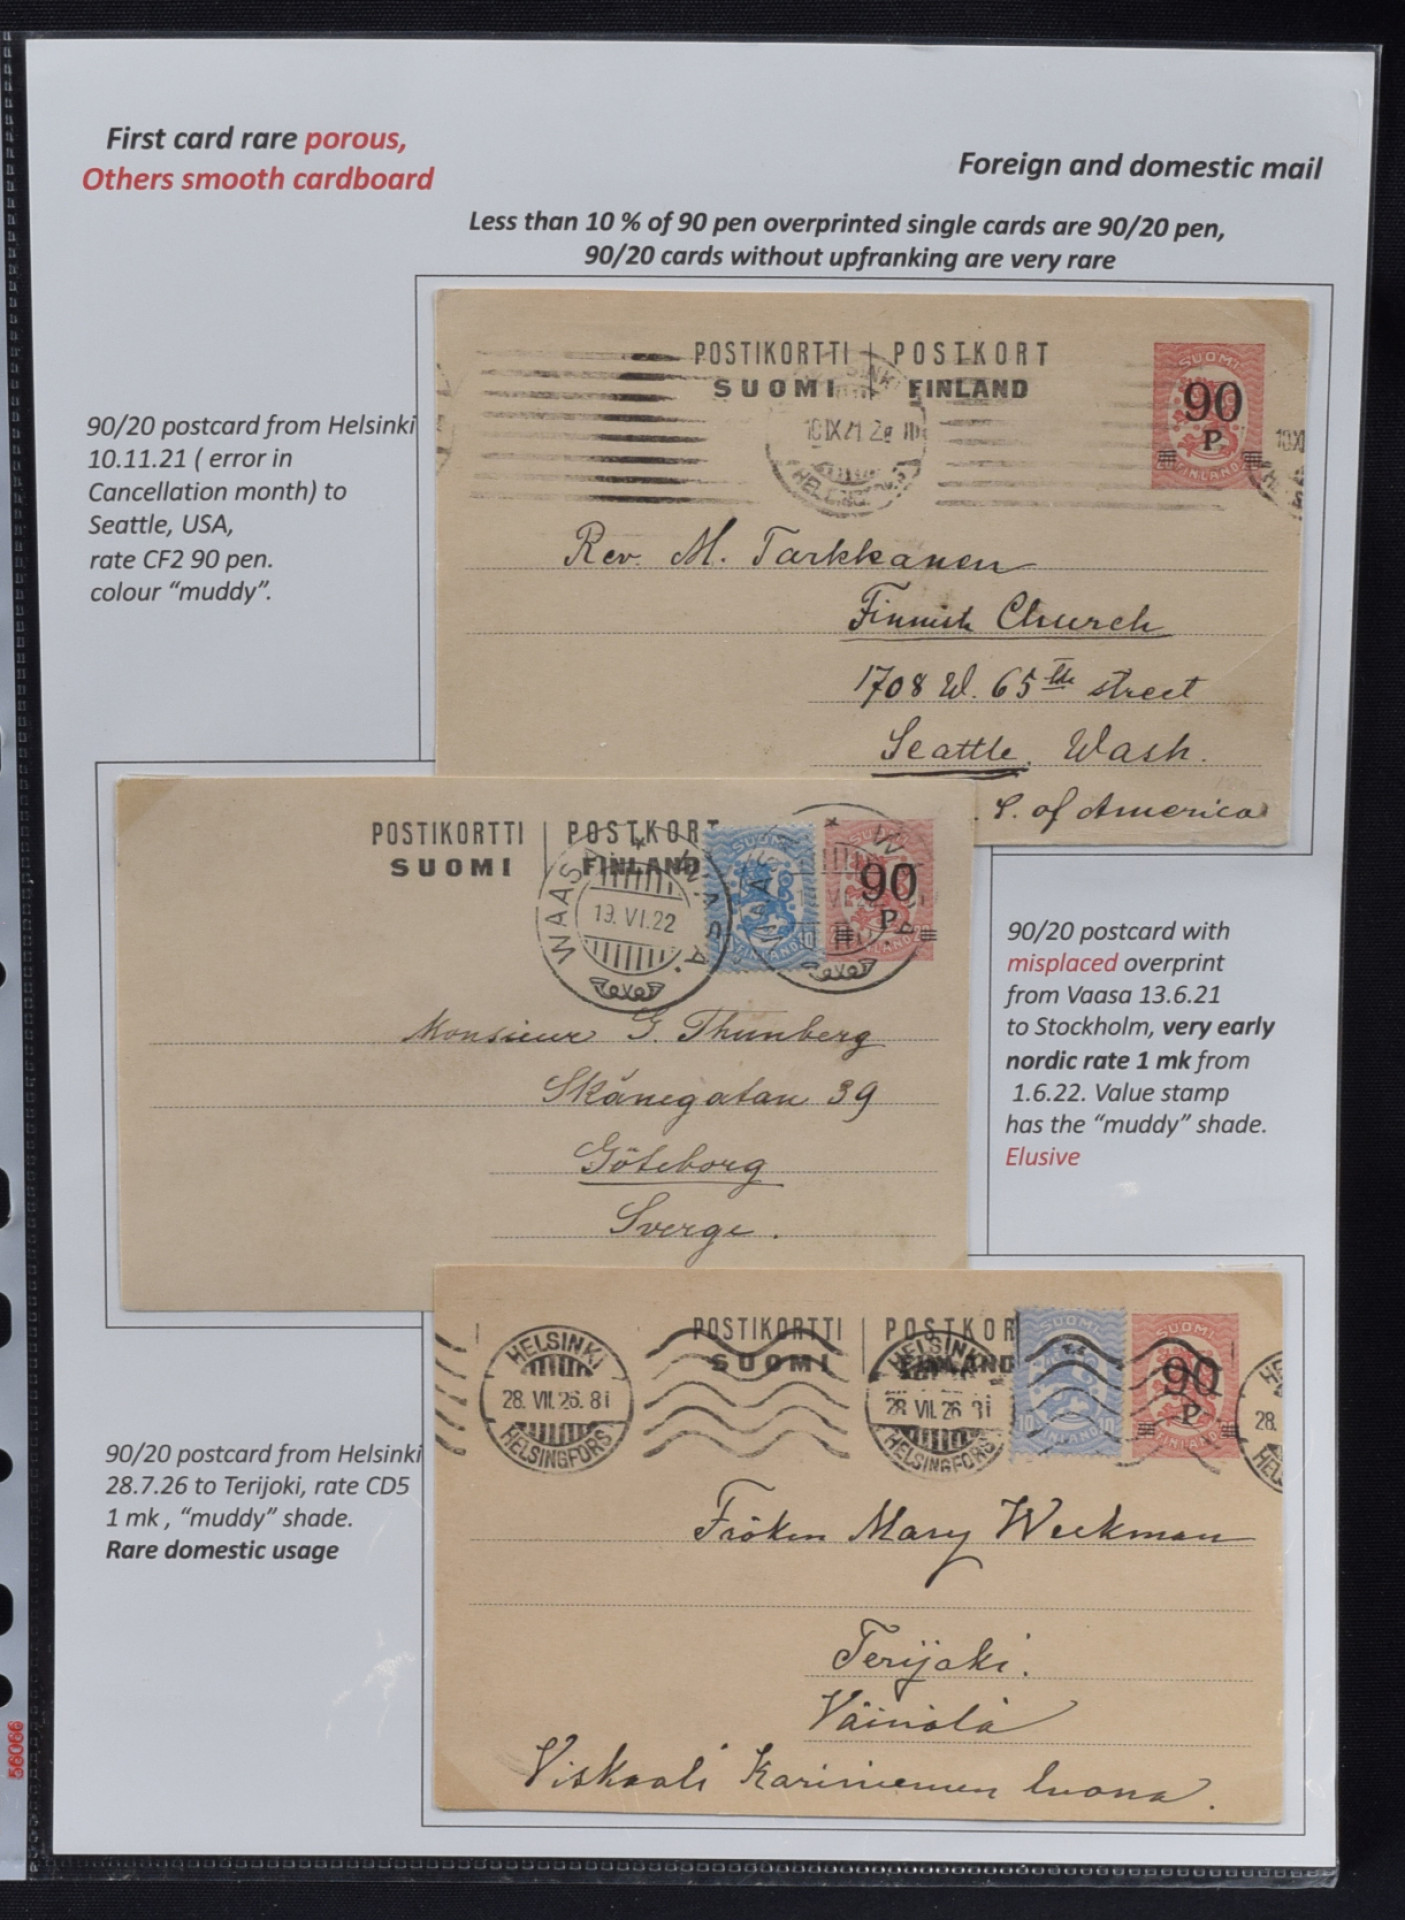 First card rare porous,
Others smooth cardboard
Foreign and domestic mail
Less than 10 % of 90 pen overprinted single cards are 90/20 pen,
90/20 cards without upfranking are very rare
90/20 postcard from Helsinki
10.11.21 ( error in
Cancellation month) to
Seattle, USA,
rate CF2 90 pen.
colour “muddy”.
POSTIKORTTI | POSTKORT
SUOMI | FINLAND
HELSINKI
10 IX 21
HELSINGFORS
SUOMI
90
P.
FINLAND
10XI
Rev. M. Tarkkanen
Finnish Church
1708 W. 65th street
Seattle, Wash.
S. of America
POSTIKORTTI | POSTKORT
SUOMI | FINLAND
WAASA * VAASA
19. VI. 22
SUOMI
10
FINLAND
90
P.
Monsieur G. Thunberg
Skånegatan 39
Göteborg
Sverge.
90/20 postcard with
misplaced overprint
from Vaasa 13.6.21
to Stockholm, very early
nordic rate 1 mk from
1.6.22. Value stamp
has the “muddy” shade.
Elusive
POSTIKORTTI | POSTKOR
SUOMI | FINLAND
HELSINKI
28. VII. 26. 8 i
HELSINGFORS
HELSINKI
28 VII. 26 8 i
HELSINGFORS
SUOMI
10 10
FINLAND
SUOMI
90
P.
FINLAND
28.
Fröken Mary Weckman
Terijoki.
Väinölä
Viskaali Kariniemen luona.
90/20 postcard from Helsinki
28.7.26 to Terijoki, rate CD5
1 mk , “muddy” shade.
Rare domestic usage
56066